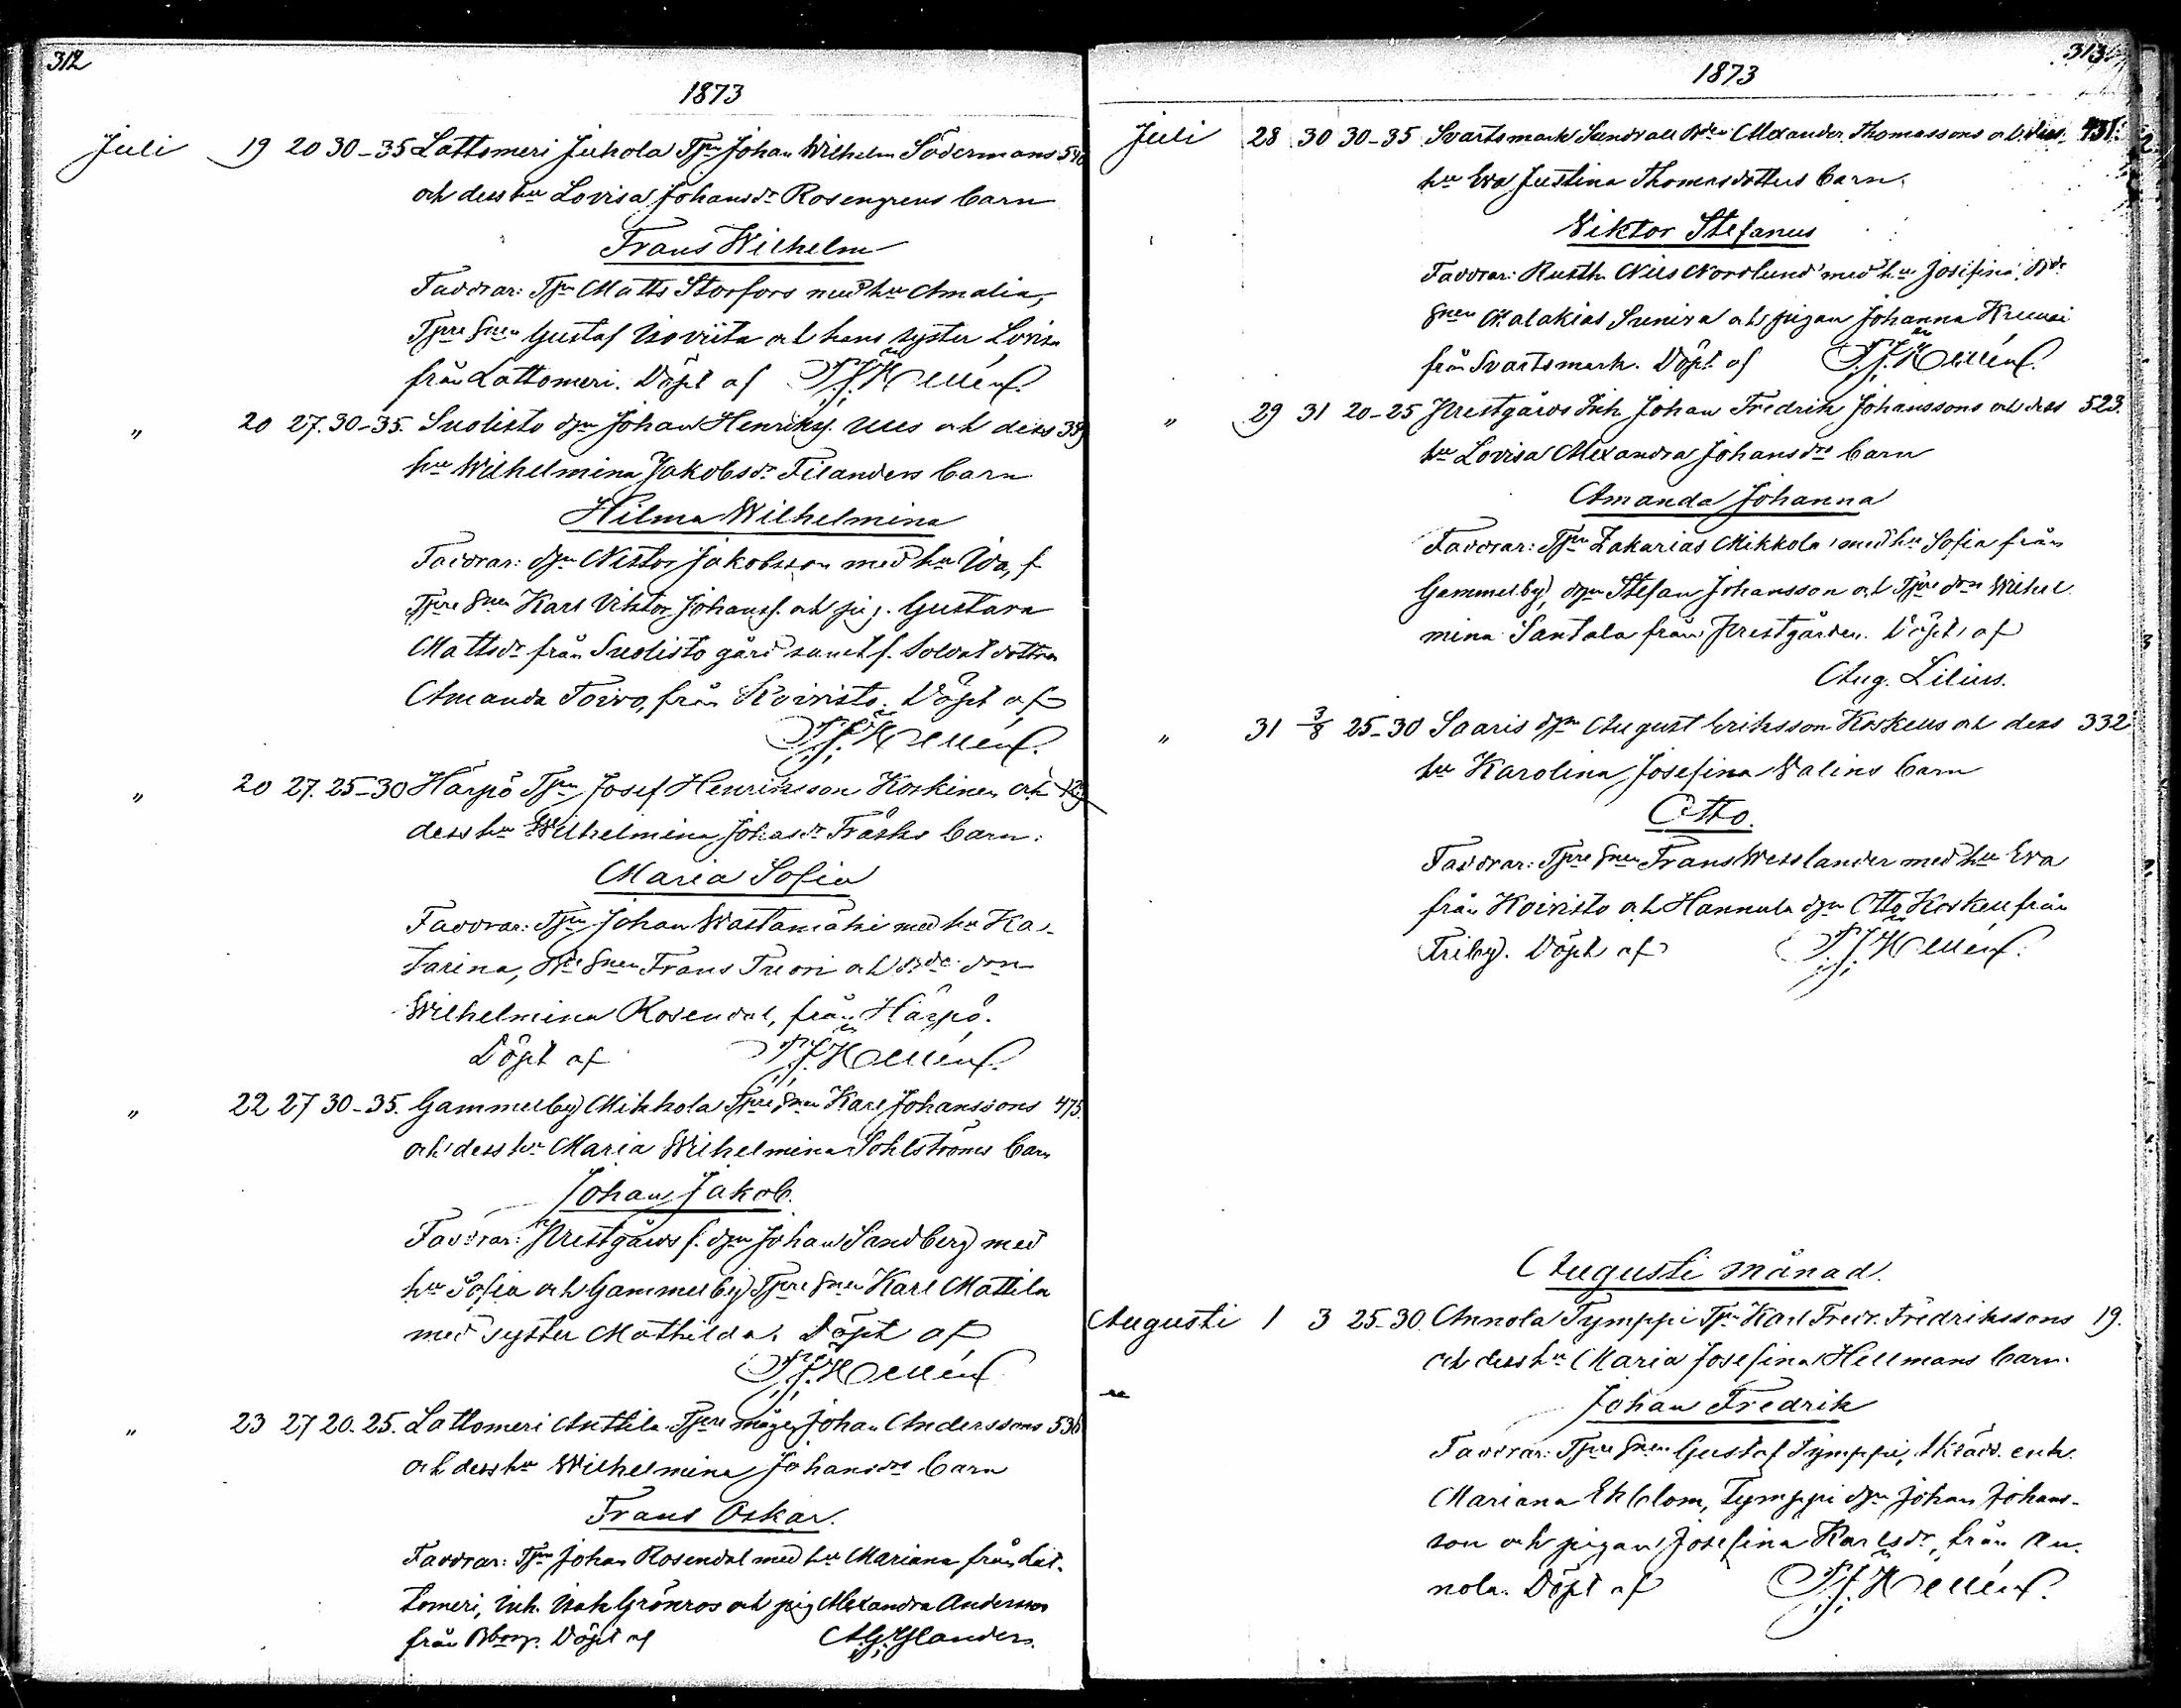 312
1873
Juli 19 20 30-35 Lattomeri Juhola Tpn Johan Wilhelm Södermans
och dess hu Lovisa Johansdr Rosengrens barn
Frans Wilhelm
Faddrar: Tpn Matts Storfors med hu Amalia,
Tpre snen Gustaf och hans syster Lovisa
från Lattomeri. Döpt af
" 20 27. 30-35. Suolisto dgn Johan och dess
hu Wilhelmina Jakobsdr Filanders barn
Hilma Wilhelmina
Faddrar: dgn Nestor Jakobsson med hu Ida, f
Tpre snen Karl Viktor Johans f. och pig. Gustava
Mattsdr från Suolisto gård samt f. Soldat dottren
Amanda Toivo, från Koivisto. Döpt af
" 20 27. 25-30 Härpö Tpn Josef Henriksson Koskinen och
dess hu Wilhelmina Johasdr Träsks barn.
Maria Sofia
Faddrar: Tpn Johan Wastamäki med hu Ka-
tarina, snen Frans och Bde don
Wilhelmina Rosendal, från Härpö.
Döpt af
" 22 27 30-35. Gammelby Mikkola Tpre snen Karl Johanssons 475.
och dess hu Maria Wilhelmina Sohlströms barn
Johan Jakob.
Faddrar: Prestgårds f. dgn Johan Sandberg med
hu Sofia och Gammelby Tpre snen Karl Mattila
med syster Mathilda. Döpt af
" 23 27 20-25. Lattomeri Anttila Tpre mågen Johan Anderssons 536
och dess hu Wilhelmina Johansdrs barn
Frans Oskar.
Faddrar: Tpn Johan Rosendal med hu Mariana från Lat-
tomeri, Inh. Isak Grönroos och pig Alexandra Andersson
från Bborg. Döpt af
313
1873
Juli 28 30 30-35 Svartsmark Sundvall Bden Alexander Thomassons och dess 431.
hu Eva Justina Thomasdotters barn.
Viktor Stefanus
Faddrar: Rusth. Nils Nordlund med hu Josefina, Bde
snen Malakias och pigan Johanna
från Svartsmark. Döpt af
" 29 31 20-25 Prestgårds Inh. Johan Fredrik Johanssons och dess 523.
hu Lovisa Alexandra Johansdrs barn
Amanda Johanna
Faddrar: Tpn Zakarias Mikkola med hu Sofia från
Gammelby, dgn Stefan Johansson och Tpre don Wilhel-
mina Santala från Prestgården. Döpt af
Aug. Lilius.
" 31 3/8 25-30 Saaris dgn August Eriksson Koskelis och dess 332
hu Karolina Josefina Valins barn
Otto.
Faddrar: Tpre snen Frans Wesslander med hu Eva
från Koivisto och Hannula dgn Otto Koskeli från
Friby. Döpt af
Augusti månad.
Augusti 1 3 25-30. Annola Tymppi Tpn Karl Fredr. Fredrikssons 19.
och dess hu Maria Josefina Hellmans barn.
Johan Fredrik
Faddrar: Tpre snen Gustaf Tymppi, Skräd. enk.
Mariana Ekblom, Tymppi dgn Johan Johans-
son och pigan Josefina Karlsdr, från An-
nola. Döpt af